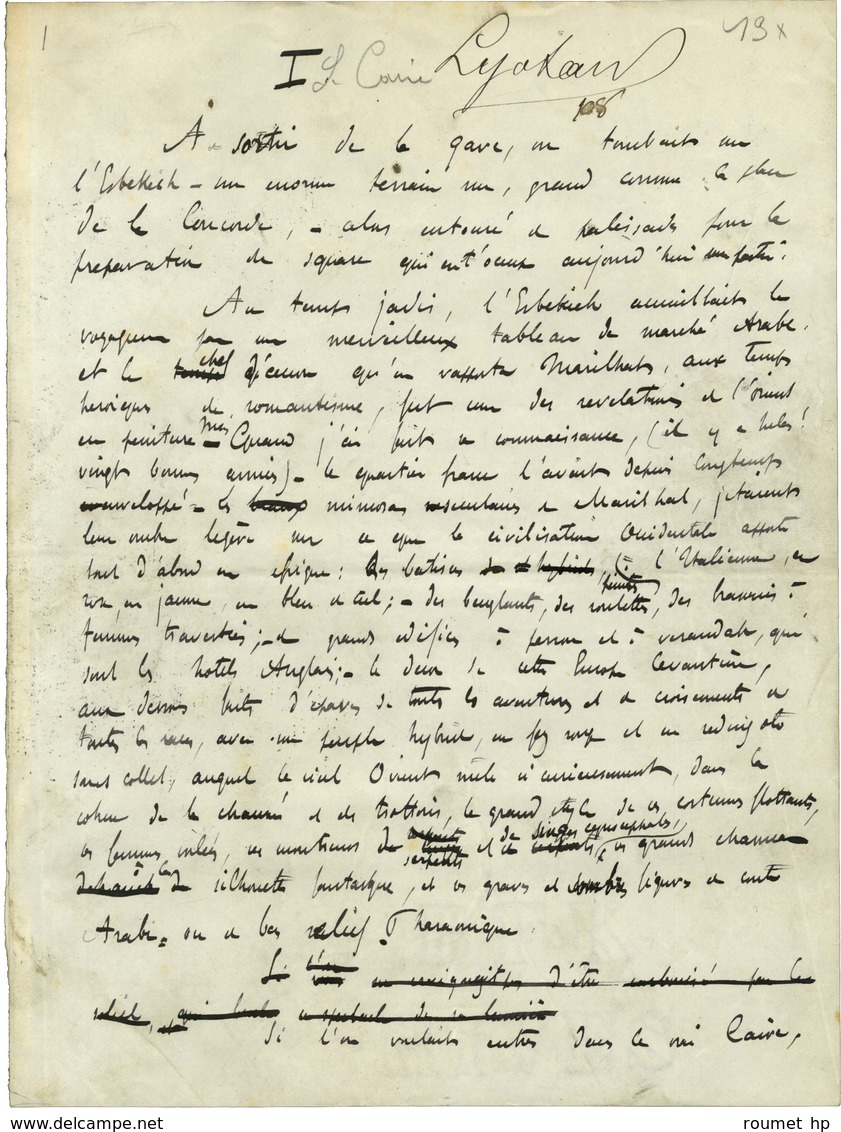 I Le Caire Lyokan 19 x
108
A la sortie de la gare, on tombait sur
l'Esbekieh – un enorme terrain nu, grand comme la place
de la Concorde, – alors entouré de palissades pour la
preparation du square qui ont l'occupe aujourd'hui
Au temps jadis, l'Esbekieh accueillait le
voyageur par un merveilleux tableau de marché Arabe.
et le chef d'œuvre qu'en rapporta Marilhat, aux temps
heroiques du romantisme, fut une des revelations de l'Orient
en peinture – Mais Quand j'en fait la connaissance, (il y a helas!
vingt bonnes années) – le quartier franc l'avait depuis longtemps
enveloppé – les beaux mimosas seculaires de Marilhat, jetaient
leur ombre legère sur ce que la civilisation Occidentale apporte
tout d'abord en Afrique: des batisses à l'Italienne, en
rose, en jaune, en bleu de ciel; – des beuglants, des roulettes, des brasseries à
femmes travesties; – de grands edifices à perron et à verandah, qui
sont les hotels Anglais; – le decor de cette Europe levantine,
aux dessous faits d'épaves de toutes les aventures et de croisements de
toutes les races, avec son peuple hybride, en fez rouge et en redingote
sans collet, auquel le vieil Orient mêle si curieusement, dans la
cohue de la chaussée et des trottoirs, le grand style de ces costumes flottants,
ces femmes voilées, ces montreurs de serpents et de singes cynocephales, ces grands chameaux
de silhouette fantastique, et ces graves et sombres figures de conte
Arabe – ou de bas relief Pharaonique.
Si l'on ne craignait pas d'être embrasé par le
soleil,
Si l'on voulait entrer dans le vrai Caire,
roumet hp